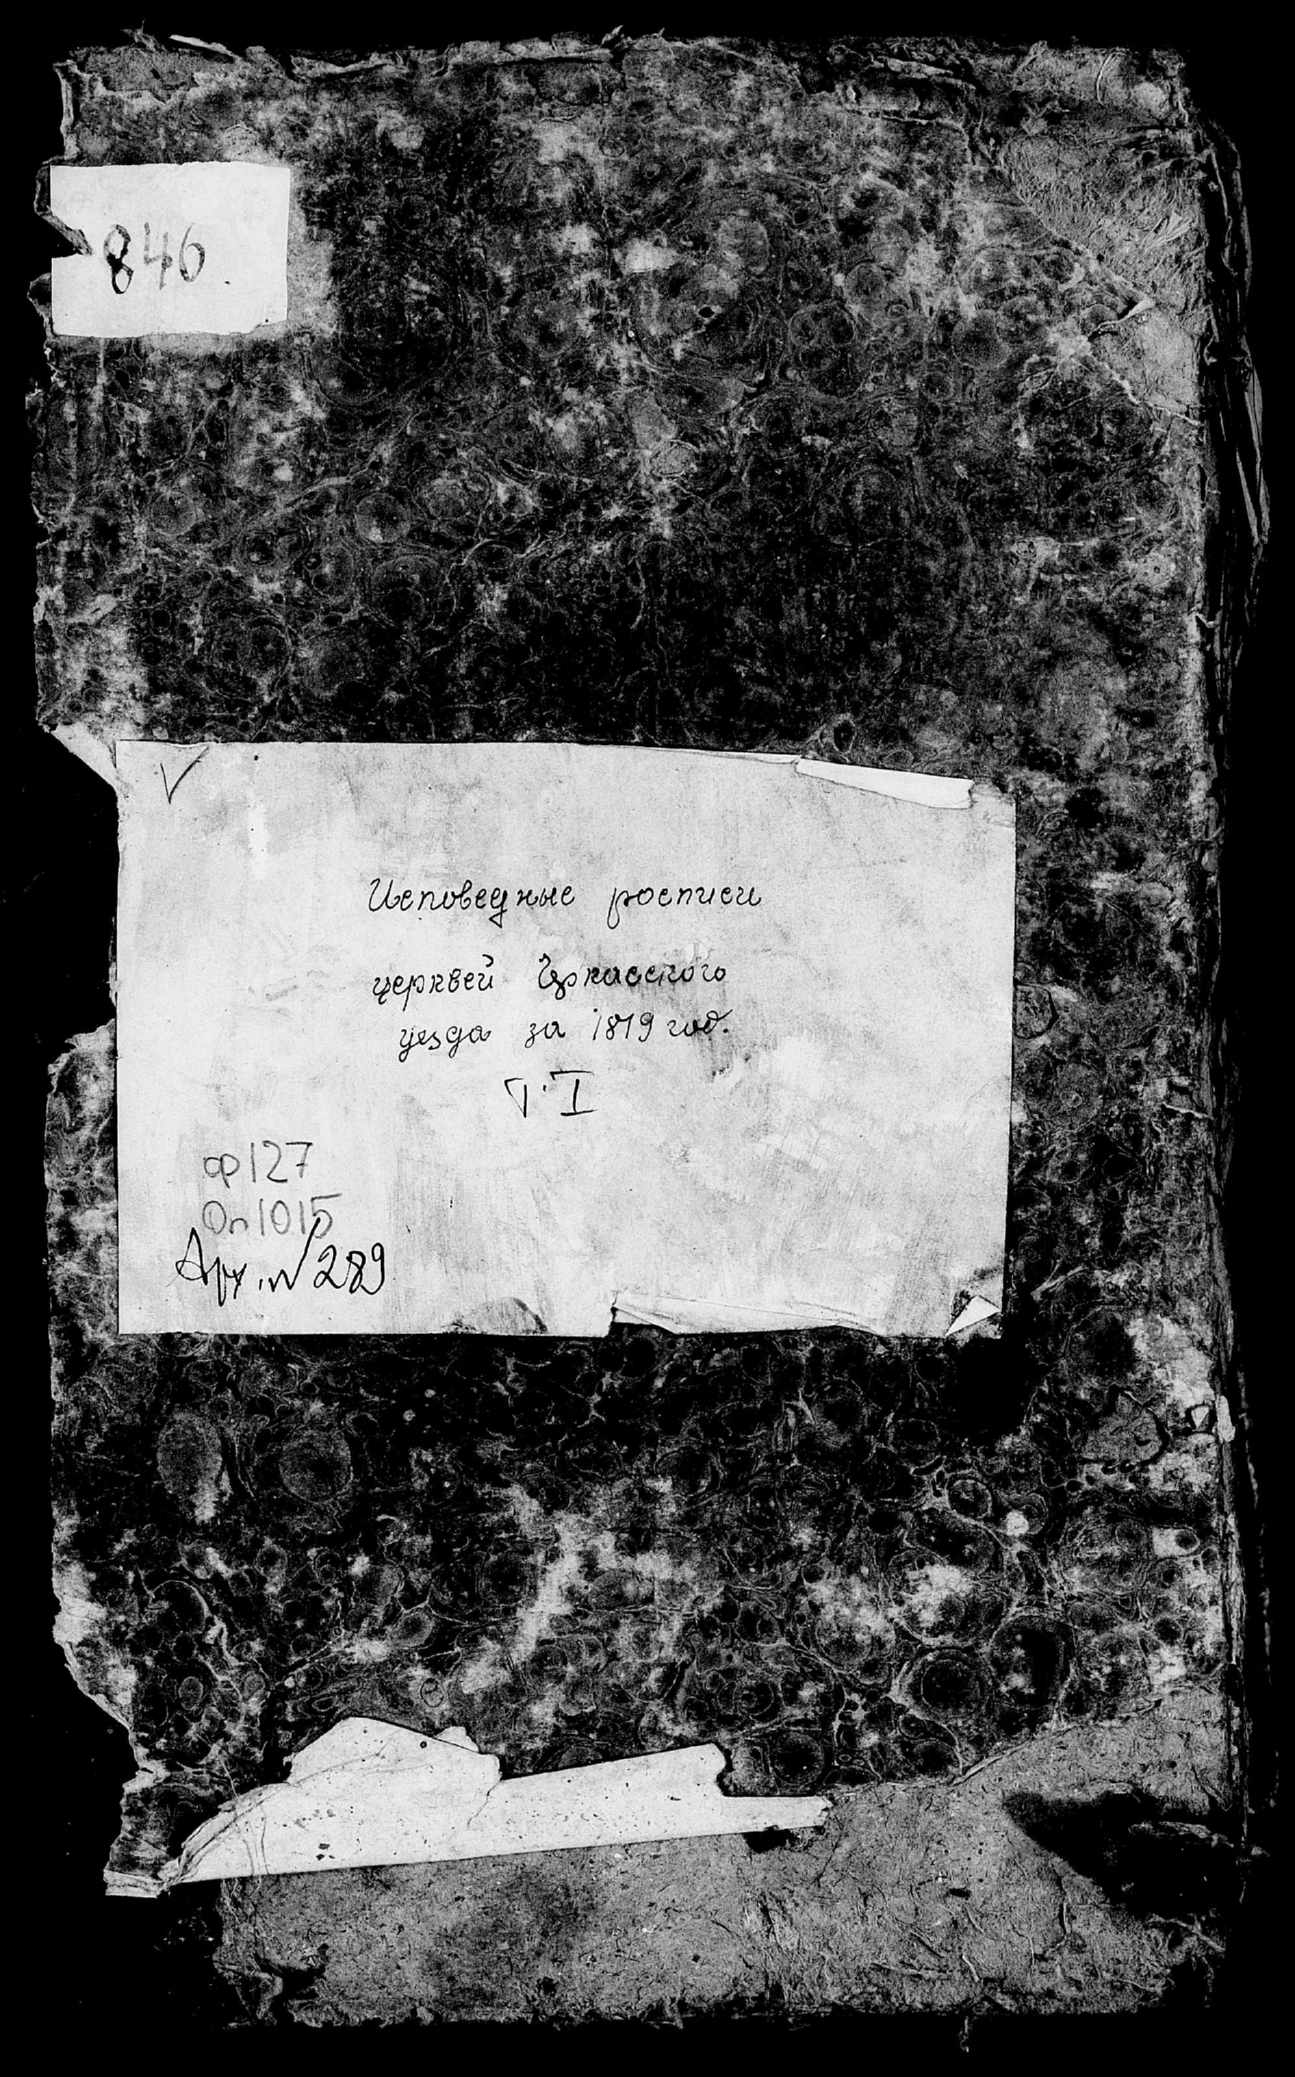 846.
Исповедные росписи
церквей Чркасского
уезда за 1819 год.
Т. I
ф 127
Оп 1015
Арх. № 289